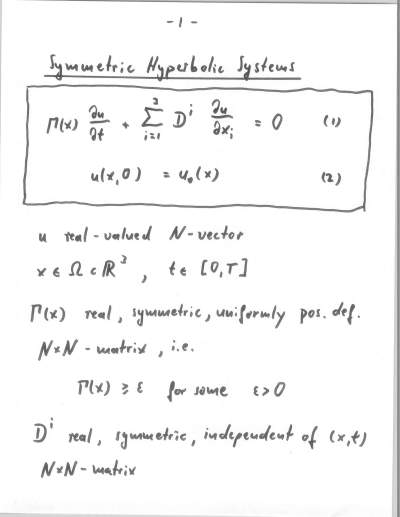 - 1 -
Symmetric Hyperbolic Systems
Γ(x) ∂u/∂t + Σ_{i=1}^{3} D^i ∂u/∂x_i = 0 (1)
u(x,0) = u_0(x) (2)
u real-valued N-vector
x ∈ Ω ⊂ ℝ^3, t ∈ [0,T]
Γ(x) real, symmetric, uniformly pos. def.
N×N-matrix, i.e.
Γ(x) ≥ ε for some ε>0
D^i real, symmetric, independent of (x,t)
N×N-matrix